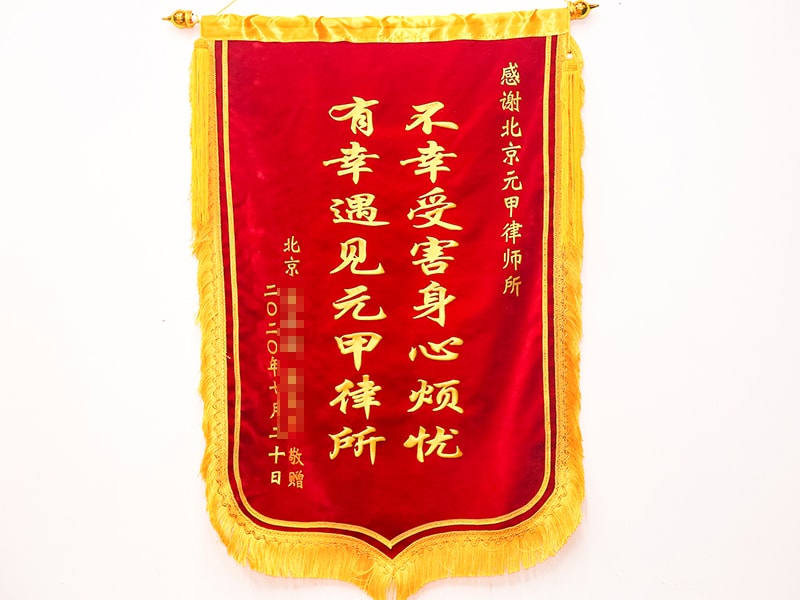 感谢北京元甲律师所
不幸受害身心烦忧
有幸遇见元甲律所
北京
敬赠
二〇二〇年七月二十日